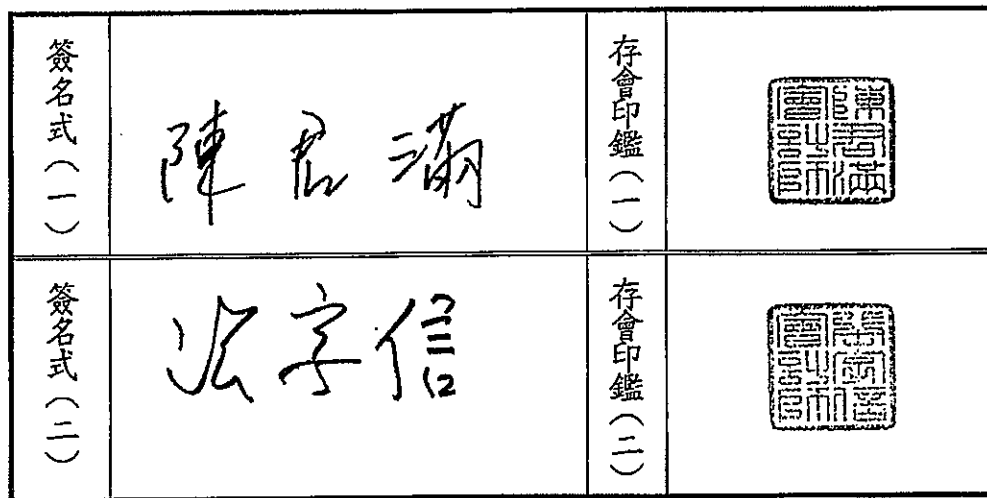 簽名式(一)
陳君滿
存會印鑑(一)
陳君滿
會計師
簽名式(二)
張字信
存會印鑑(二)
會計師